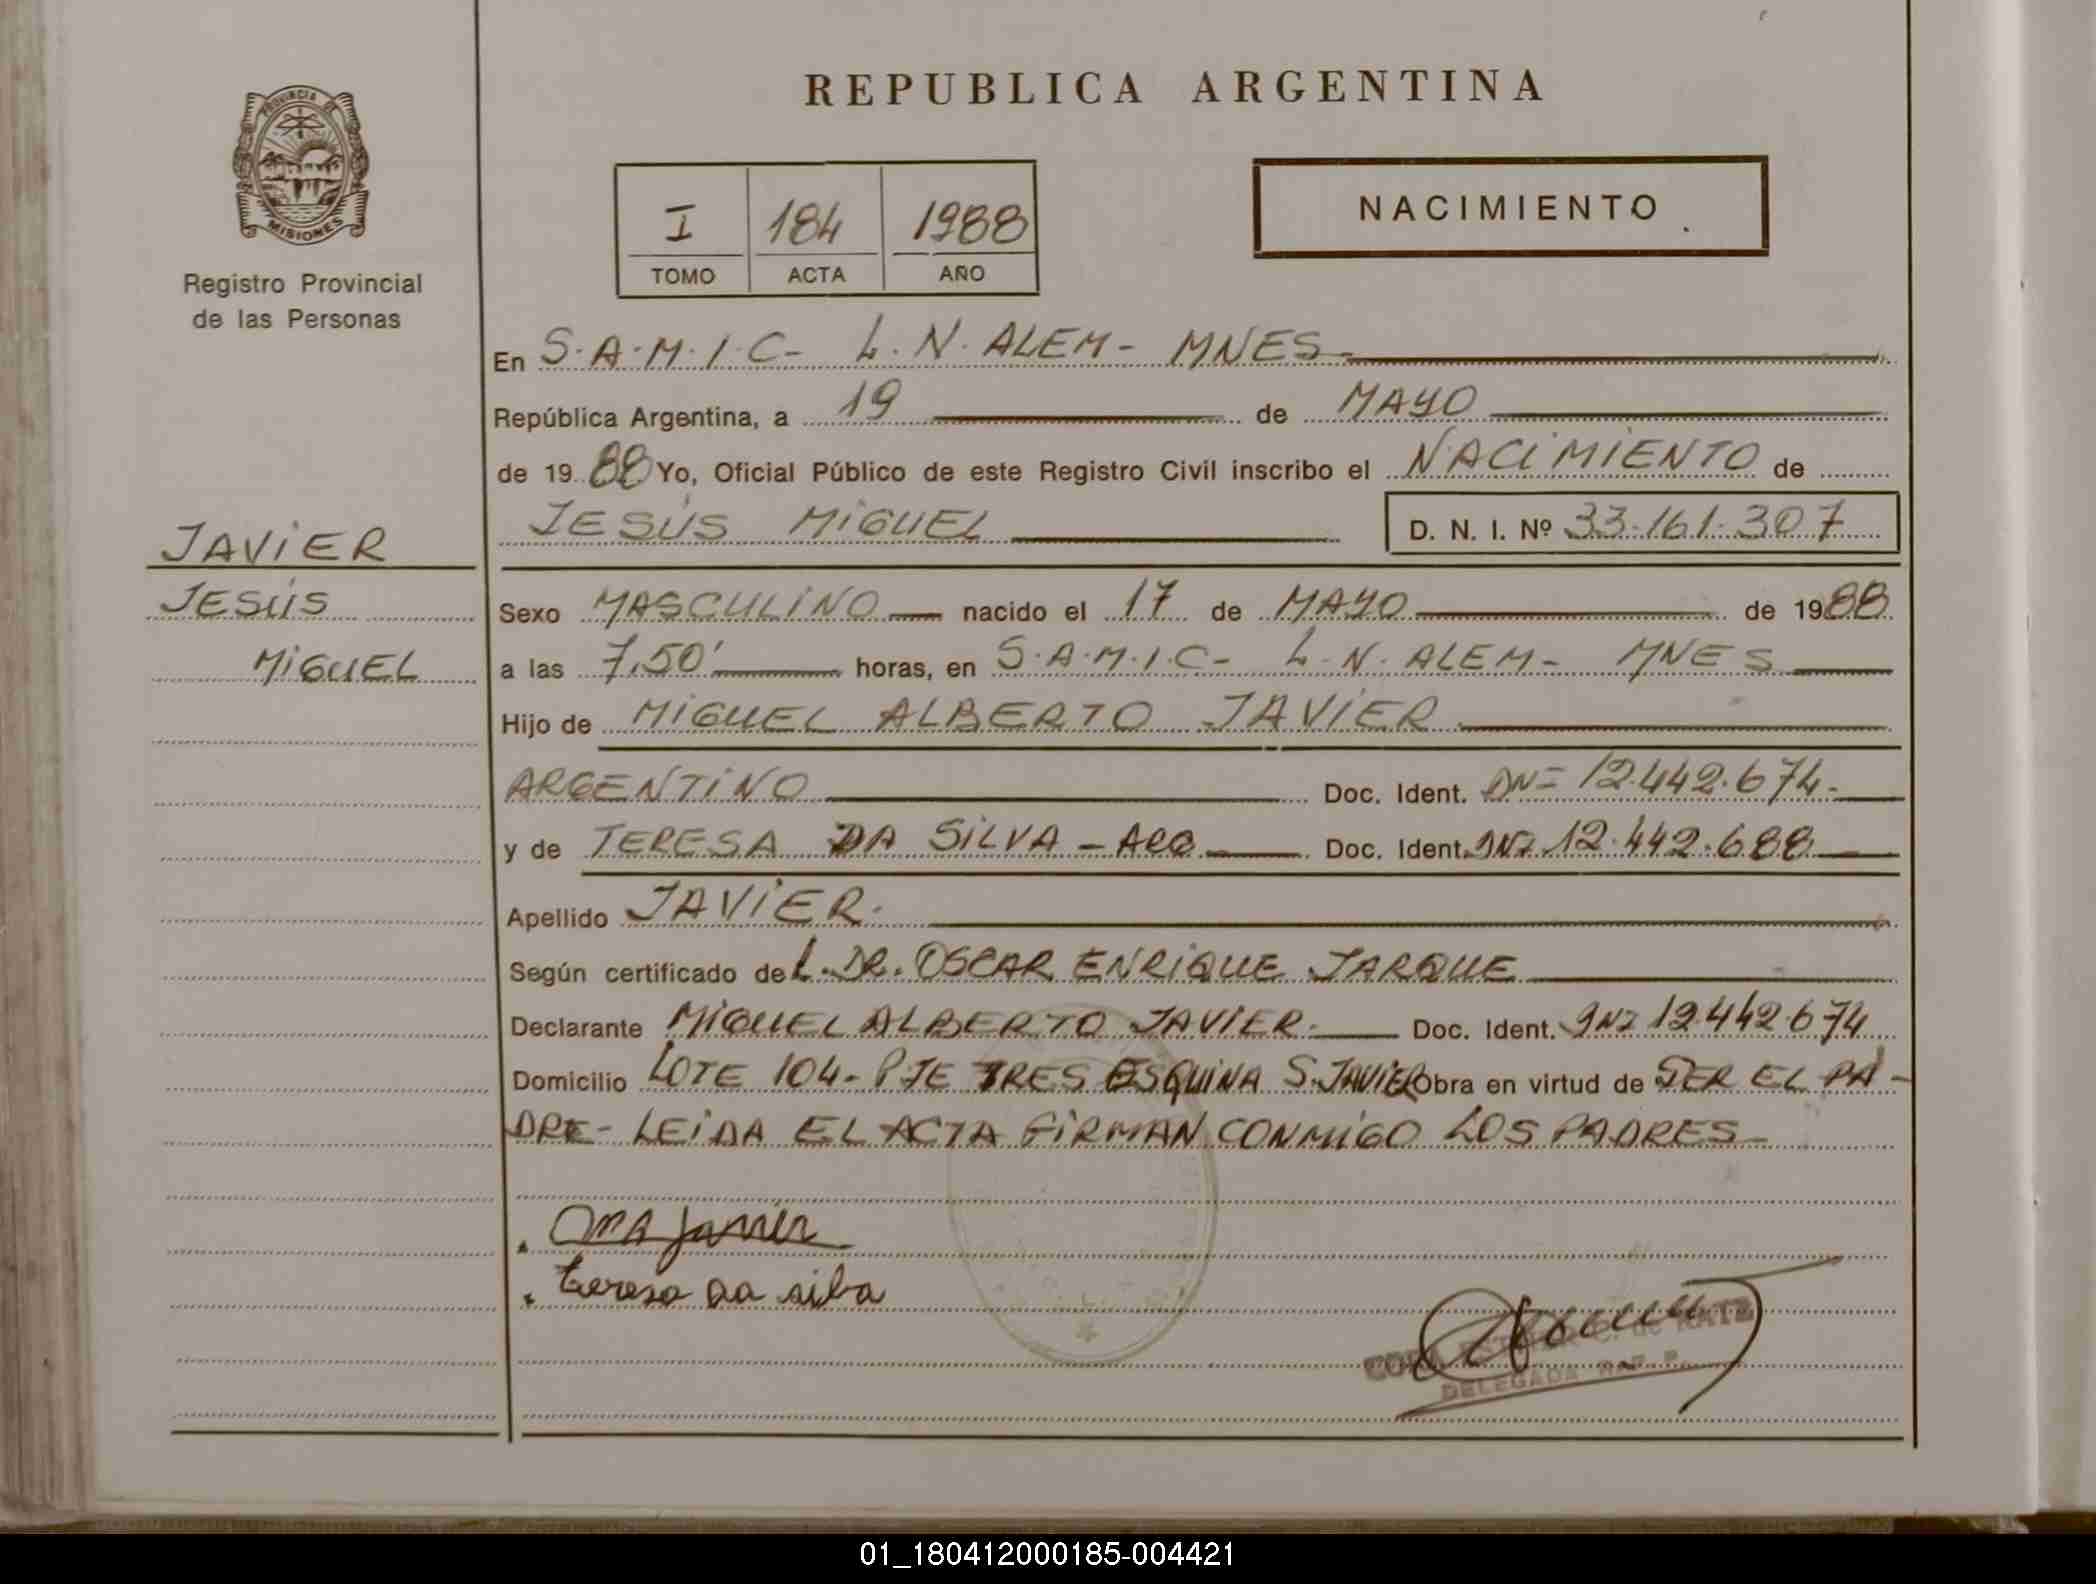 REPUBLICA ARGENTINA
PROVINCIA DE
MISIONES
Registro Provincial
de las Personas
I 184 1988
TOMO ACTA AÑO
NACIMIENTO
En S.A.M.I.C- L.N. ALEM- MNES
República Argentina, a 19 de MAYO
de 19 88 Yo, Oficial Público de este Registro Civil inscribo el NACIMIENTO de
JESÚS MIGUEL D. N. I. Nº 33.161.307
JAVIER
JESÚS
MIGUEL
Sexo MASCULINO nacido el 17 de MAYO de 1988
a las 7,50' horas, en S.A.M.I.C- L.N. ALEM- MNES
Hijo de MIGUEL ALBERTO JAVIER
ARGENTINO Doc. Ident. DNI 12.442.674.
y de TERESA DA SILVA - ARG Doc. Ident. DNI 12.442.688
Apellido JAVIER.
Según certificado del. DR. OSCAR ENRIQUE JARQUE
Declarante MIGUEL ALBERTO JAVIER. Doc. Ident. DNI 12.442.674
Domicilio LOTE 104- PJE TRES ESQUINA S. JAVIER Obra en virtud de SER EL PA-
DRE- LEIDA EL ACTA FIRMAN CONMIGO LOS PADRES-
Javier
teresa da silva
DELEGADA
01_180412000185-004421